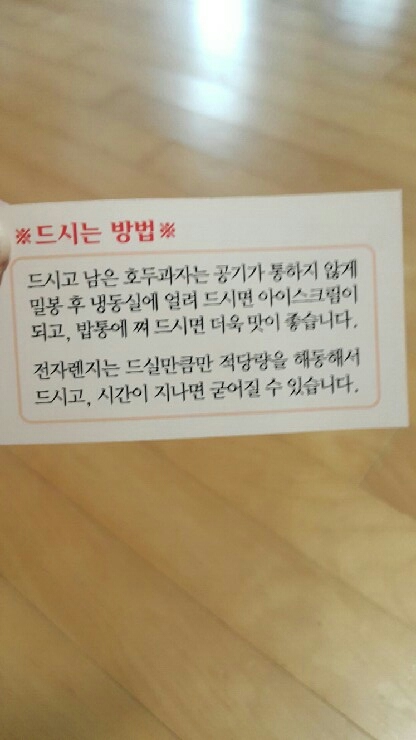 ※드시는 방법※
드시고 남은 호두과자는 공기가 통하지 않게
밀봉 후 냉동실에 얼려 드시면 아이스크림이
되고, 밥통에 쪄 드시면 더욱 맛이 좋습니다.
전자렌지는 드실만큼만 적당량을 해동해서
드시고, 시간이 지나면 굳어질 수 있습니다.